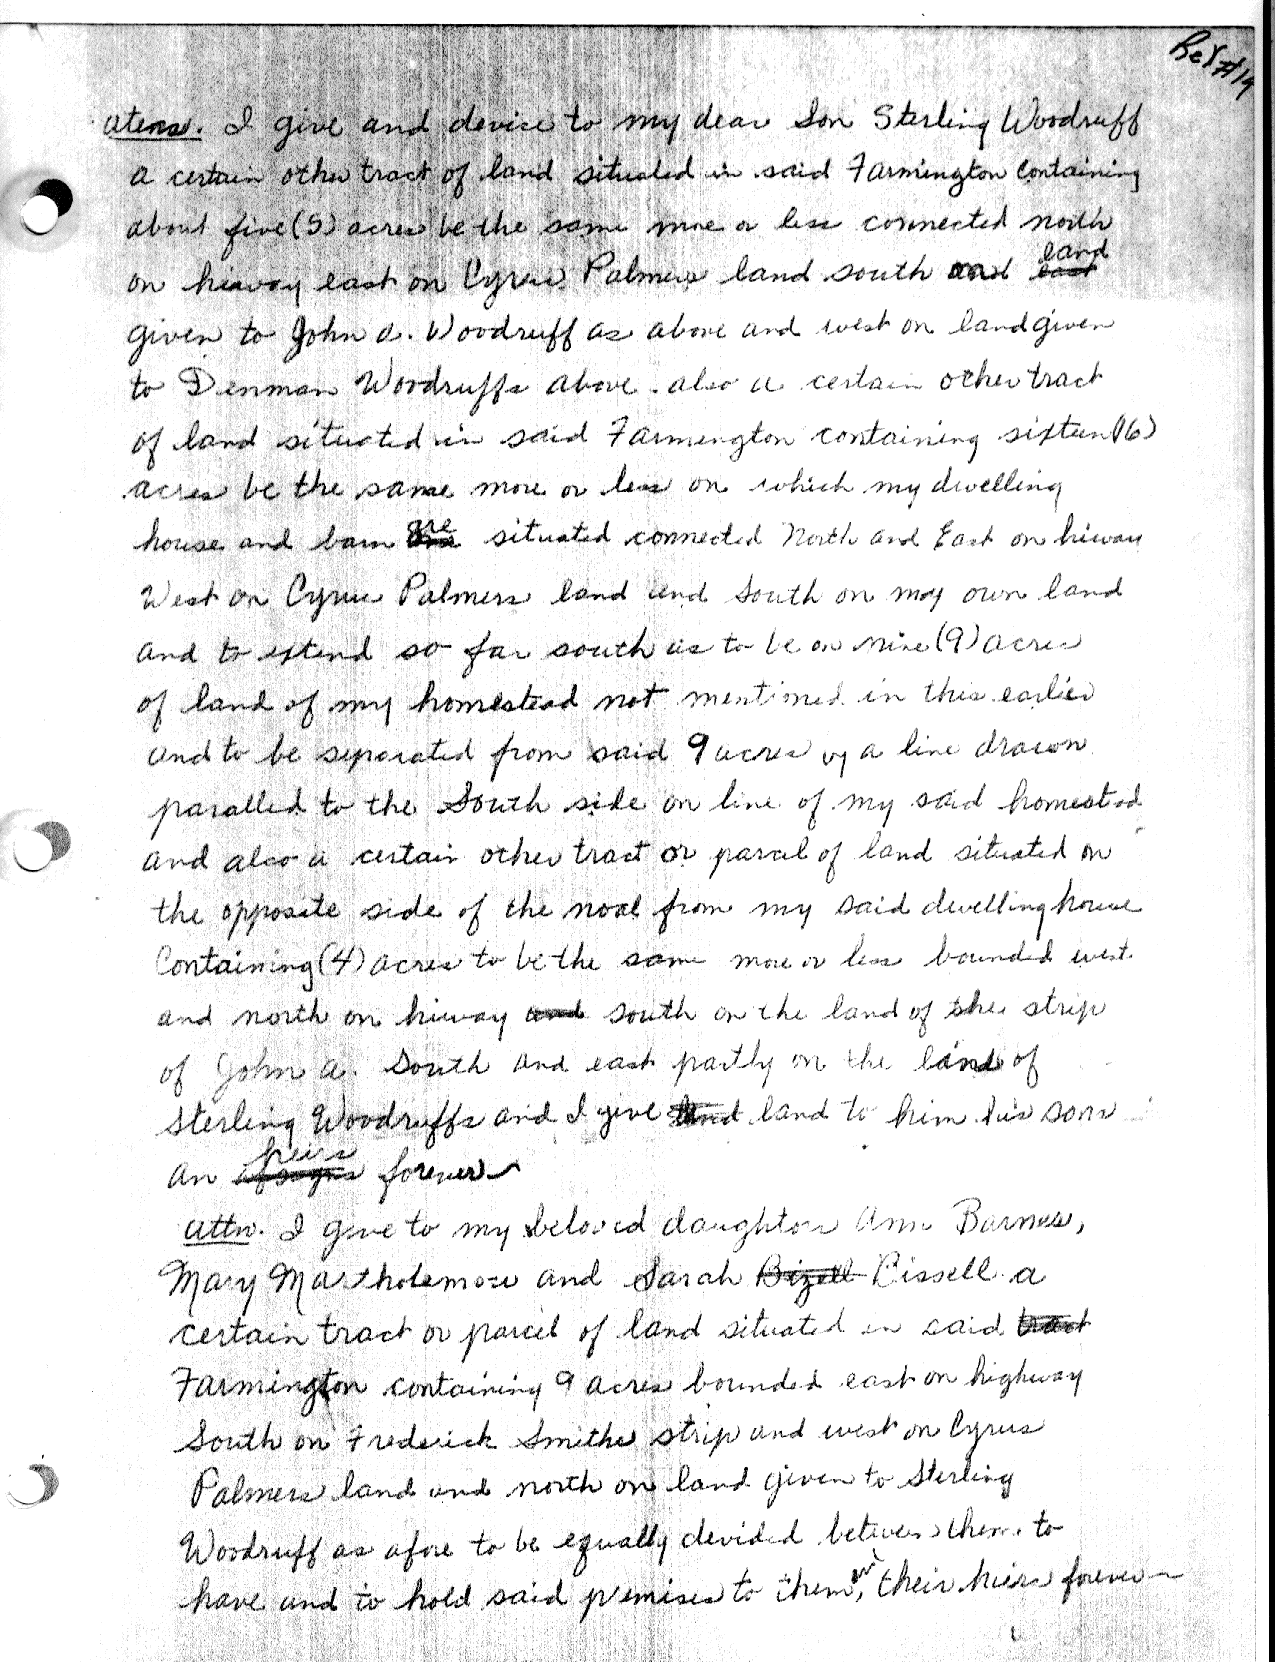 Ref #14
Atens. I give and device to my dear Son Sterling Woodruff
a certain other tract of land situated in said Farmington Containing
about five (5) acres be the same more or less connected north
on hiway east on Cyrus Palmers land south and east land
given to John A. Woodruff as above and west on land given
to Denman Woodruffs above. also a certain other tract
of land situated in said Farmington containing sixteen (16)
acres be the same more or less on which my dwelling
house and barn are situated connected North and East on hiway
West on Cyrus Palmers land and South on my own land
and to extend so far south as to be on nine (9) acres
of land of my homestead not mentioned in this earlier
and to be separated from said 9 acres by a line drawn
paralled to the South side on line of my said homestead
and also a certain other tract or parcel of land situated on
the opposite side of the road from my said dwelling house
Containing (4) acres to be the same more or less bounded west
and north on hiway and south on the land of the strip
of John A. South and east partly on the land of
Sterling Woodruffs and I give land to him his sons
an heirs forever
Attn. I give to my beloved daughters Ann Barnes,
Mary Martholemose and Sarah Bizell Bissell a
certain tract or parcel of land situated in said tract
Farmington containing 9 acres bounded east on highway
South on Frederick Smiths strip and west on Cyrus
Palmers land and north on land given to Sterling
Woodruff as afore to be equally devided between them to
have and to hold said premises to them, and their heirs forever